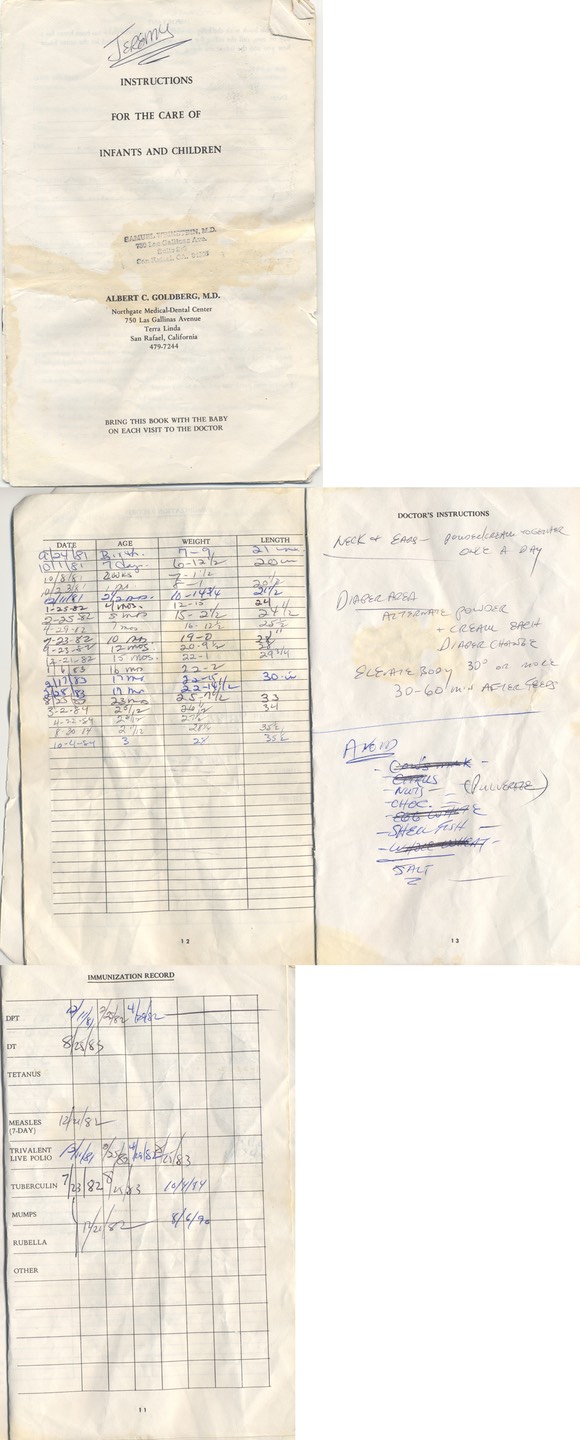 JEREMY
INSTRUCTIONS
FOR THE CARE OF
INFANTS AND CHILDREN
SAMUEL M.D.
750 Las Gallinas Ave.
San Rafael, CA.
ALBERT C. GOLDBERG, M.D.
Northgate Medical-Dental Center
750 Las Gallinas Avenue
Terra Linda
San Rafael, California
479-7244
BRING THIS BOOK WITH THE BABY
ON EACH VISIT TO THE DOCTOR
DATE AGE WEIGHT LENGTH
9/24/81 Birth 7-9 21
10/1/81 7 days 6-12½ 20
10/8/81 2 wks 7-1½
20½
12/11/81 2½ mos. 10-14¾ 21½
1-25-82 4 mos. 24
2-25-82 5 mos 15-2½ 24½
16-12½ 25½
7-23-82 10 mos 19-0
9-23-82 12 mos 20-9½ 28
15 mos. 22-1 29¾
16 mos 22-2
2/17/83 17 mo 22-15 30
17 mo 22-14½
8/23/83 23 mo 33
3-2-84 34
4-22-84
35½
10-4-84 3 35½
12
DOCTOR'S INSTRUCTIONS
NECK & EARS - POWDER/CREAM TOGETHER
ONCE A DAY
DIAPER AREA
ALTERNATE POWDER
+ CREAM EACH
DIAPER CHANGE
ELEVATE BODY 30° OR MORE
30-60 min AFTER FEEDS
AVOID
- COW'S MILK -
- CITRUS
- NUTS - (PULVERIZE)
- CHOC. -
- EGG WHITE
- SHELL FISH -
- WHOLE WHEAT -
SALT
13
IMMUNIZATION RECORD
DPT 12/11/81 2/25/82 4/29/82
DT 8/23/83
TETANUS
MEASLES 12/21/82
(7-DAY)
TRIVALENT 12/11/81 2/25/82 4/29/82
LIVE POLIO
TUBERCULIN 7/23/82 10/4/84
MUMPS
12/21/82 8/6/90
RUBELLA
OTHER
11